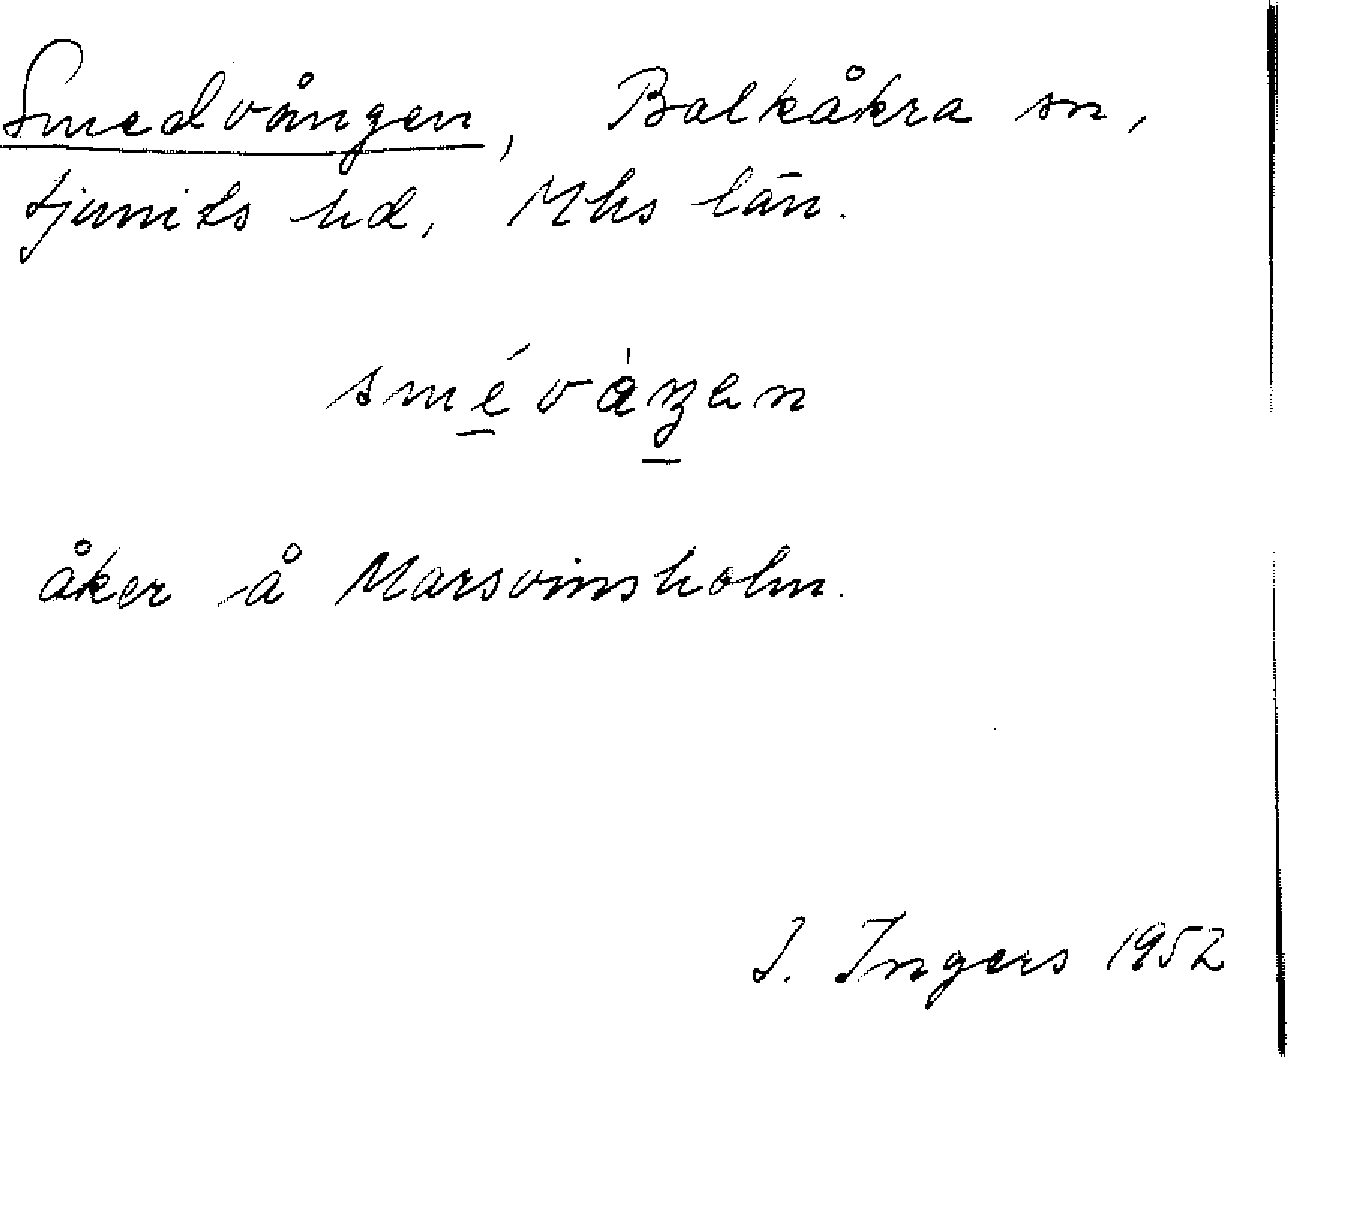 Smedvången, Balkåkra sn,
Ljunits hd, Mhs län.
smévàŋen
åker å Marsvinsholm.
I. Ingers 1952